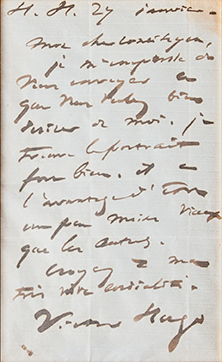 H. H. 29 janvier.
mon cher concitoyen,
je m'empresse de
vous envoyer ce
que vous voulez bien
désirer de moi. je
trouve le portrait
fort bien. il a
l'avantage d'être
un peu moins vieux
que les autres.
croyez à ma
très vive cordialité.
Victor Hugo